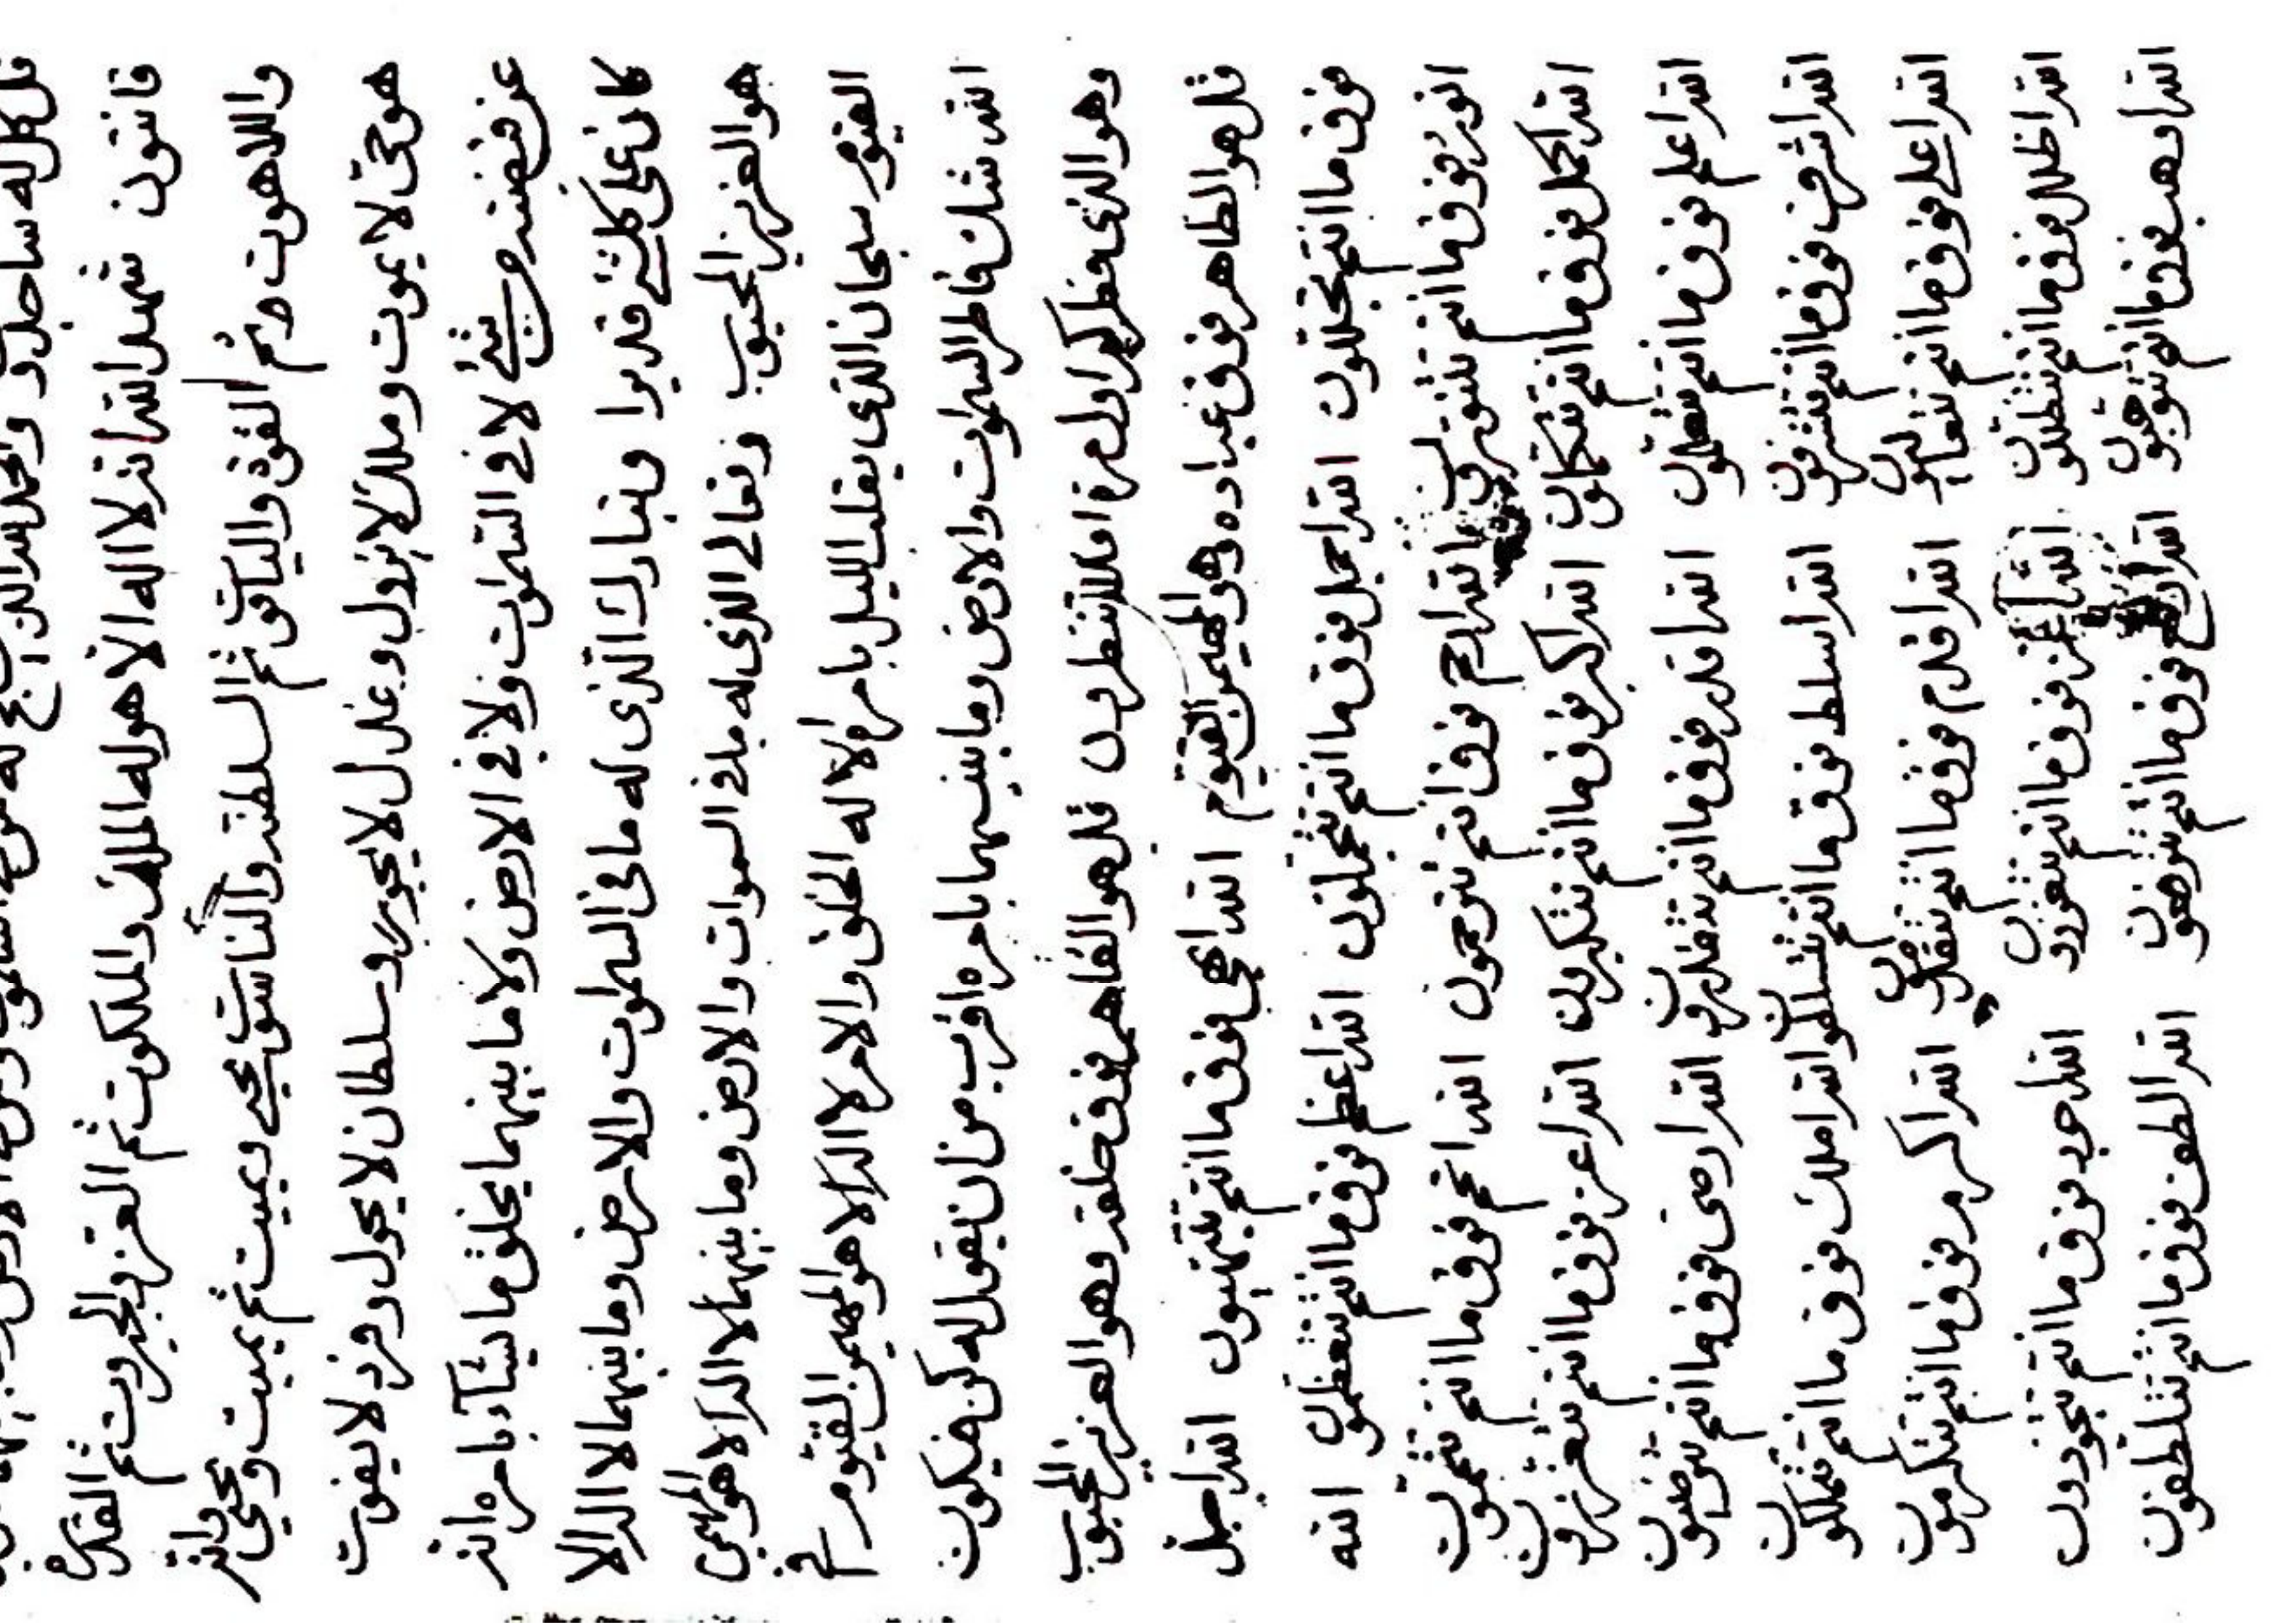 قل كل له ساجدون والحمد لله الذي يسبح له من في السموات ومن في الارض وما بينهما
قانتون شهد الله انه لا اله الا هو له الملك والملكوت ثم العز والجبروت ثم القدرة
واللاهوت ثم القوة والياقوت ثم السلطنة والناسوت يحيي ويميت ثم يميت ويحيي وانه
هو حي لا يموت وملك لا يزول وعدل لا يجور وسلطان لا يحول وفرد لا يفوت
عن قبضته من شيء لا في السموات ولا في الارض ولا ما بينهما يخلق ما يشآء بامره انه
كان على كلشيء قديرا وتبارك الذي له ما في السموات والارض وما بينهما لا اله الا
هو العزيز المحبوب وتعالى الذي له ما في السموات والارض وما بينهما لا اله الا هو المهيمن
القيوم سبحان الذي يقلب الليل بامره الا له الخلق والامر لا اله الا هو المهيمن القيوم
الله شك فاطر السموات والارض وما بينهما بامره اقرب من ان يقول له كن فيكون
وهو الذي فطركم اول مرة افلا تنظرون قل هو القاهر فوق خلقه وهو العزيز المحبوب
قل هو الظاهر فوق عباده وهو المهيمن القيوم الله ابهى فوق ما انتم تبتهيون الله اجل
فوق ما انتم تجللون الله اجمل فوق ما انتم تتجملون الله اعظم فوق ما انتم تتعظمون الله
انور فوق ما انتم تتنورون الله ارحم فوق انتم تترحمون الله اتمم فوق ما انتم تتممون
الله اكمل فوق ما انتم تتكملون الله اكبر فوق ما انتم تتكبرون الله اعزز فوق ما انتم تتعززون
الله اعلم فوق ما انتم تتعلمون الله اقدر فوق ما انتم تتقدرون الله ارضى فوق ما انتم ترضيون
الله اشرف فوق ما انتم تتشرفون الله اسلط فوق ما انتم تتسلطون الله املك فوق ما انتم تتملكون
الله اعلى فوق ما انتم تتعاليون الله اقدم فوق ما انتم تتقدمون الله اكرم فوق ما انتم تتكرمون
الله اظلل فوق ما انتم تتظللون الله اغزر فوق ما انتم تتغزرون الله اجود فوق ما انتم تتجودون
الله اوهب فوق ما انتم تتوهبون الله فوق ما انتم الله الطف فوق ما انتم تتلطفون